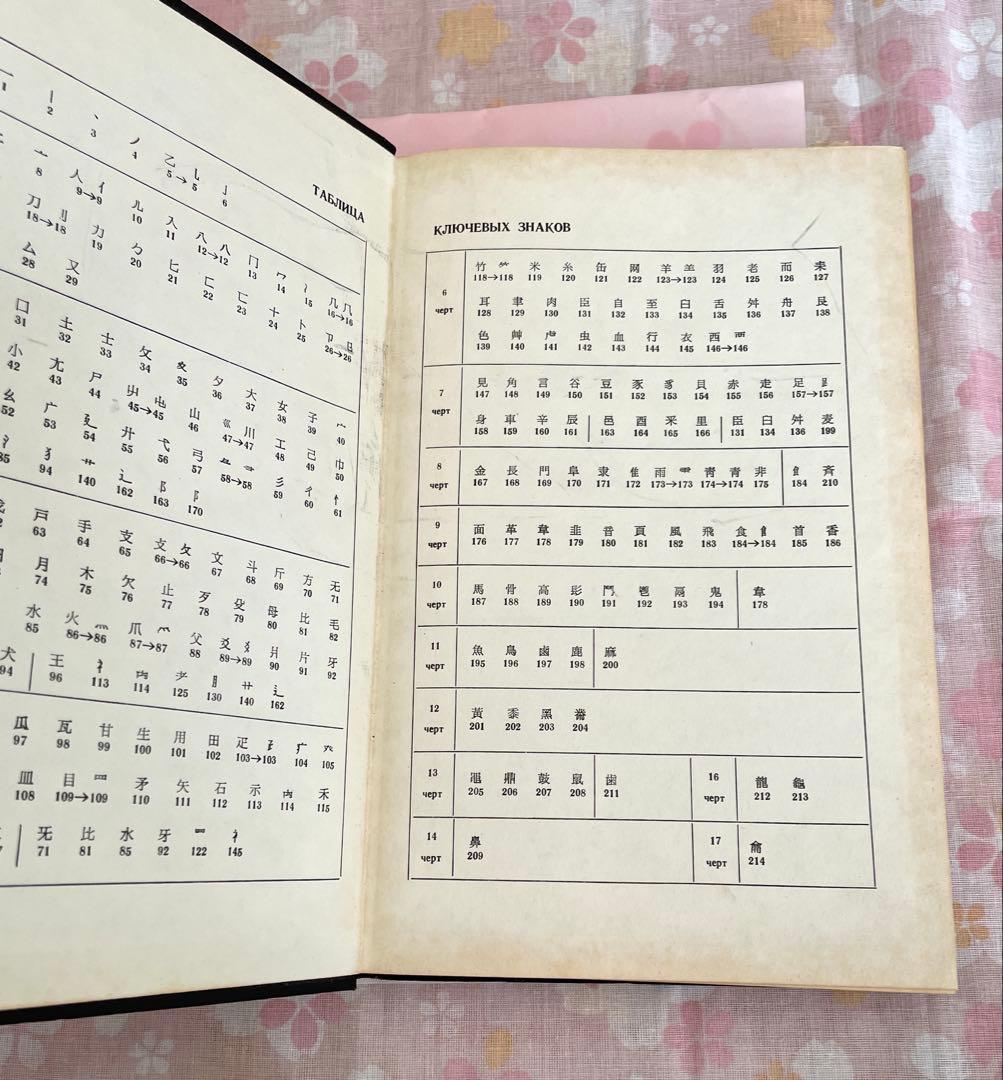 ТАБЛИЦА
一 丨 丶 丿 乙 乚 亅
1 2 3 4 5→5 6
亠 人 亻 儿 入 八 八 冂 冖 冫 几 几
8 9→9 10 11 12→12 13 14 15 16→16
刀 刂 力 勹 匕 匚 匸 十 卜 卩 㔾
18→18 19 20 21 22 23 24 25 26→26
厶 又
28 29
口 土 士 夂 夊 夕 大 女 子 宀
31 32 33 34 35 36 37 38 39 40
小 尢 尸 屮 屯 山 巛 川 工 己 巾
42 43 44 45→45 46 47→47 48 49 50
幺 广 廴 廾 弋 弓 彐 彡 彳 忄
52 53 54 55 56 57 58→58 59 60 61
氵 犭 艹 辶 阝 阝
85 94 140 162 163 170
戸 手 支 攴 攵 文 斗 斤 方 无
63 64 65 66→66 67 68 69 70 71
月 木 欠 止 歹 殳 母 比 毛
74 75 76 77 78 79 80 81 82
水 火 灬 爪 爫 父 爻 爿 片 牙
85 86→86 87→87 88 89→89 90 91 92
犬 王 礻 禸 耂 月 艹 辶
94 96 113 114 125 130 140 162
瓜 瓦 甘 生 用 田 疋 疒 癶
97 98 99 100 101 102 103→103 104 105
皿 目 罒 矛 矢 石 示 禸 禾
108 109→109 110 111 112 113 114 115
旡 比 氺 牙 罒 衤
71 81 85 92 122 145
КЛЮЧЕВЫХ ЗНАКОВ
竹 ⺮ 米 糸 缶 网 羊 羽 老 而 耒
118→118 119 120 121 122 123→123 124 125 126 127
6 черт
耳 聿 肉 臣 自 至 臼 舌 舛 舟 艮
128 129 130 131 132 133 134 135 136 137 138
色 艸 虍 虫 血 行 衣 西 覀
139 140 141 142 143 144 145 146→146
見 角 言 谷 豆 豕 豸 貝 赤 走 足
147 148 149 150 151 152 153 154 155 156 157→157
7 черт
身 車 辛 辰 邑 酉 釆 里 臣 臼 舛 麦
158 159 160 161 163 164 165 166 131 134 136 199
8 черт
金 長 門 阜 隶 隹 雨 靑 青 非 飠 斉
167 168 169 170 171 172 173→173 174→174 175 184 210
9 черт
面 革 韋 韭 音 頁 風 飛 食 飠 首 香
176 177 178 179 180 181 182 183 184→184 185 186
10 черт
馬 骨 高 髟 鬥 鬯 鬲 鬼 韋
187 188 189 190 191 192 193 194 178
11 черт
魚 鳥 鹵 鹿 麻
195 196 197 198 200
12 черт
黃 黍 黑 黹
201 202 203 204
13 черт
黽 鼎 鼓 鼠 歯
205 206 207 208 211
16 черт
龍 龜
212 213
14 черт
鼻
209
17 черт
龠
214